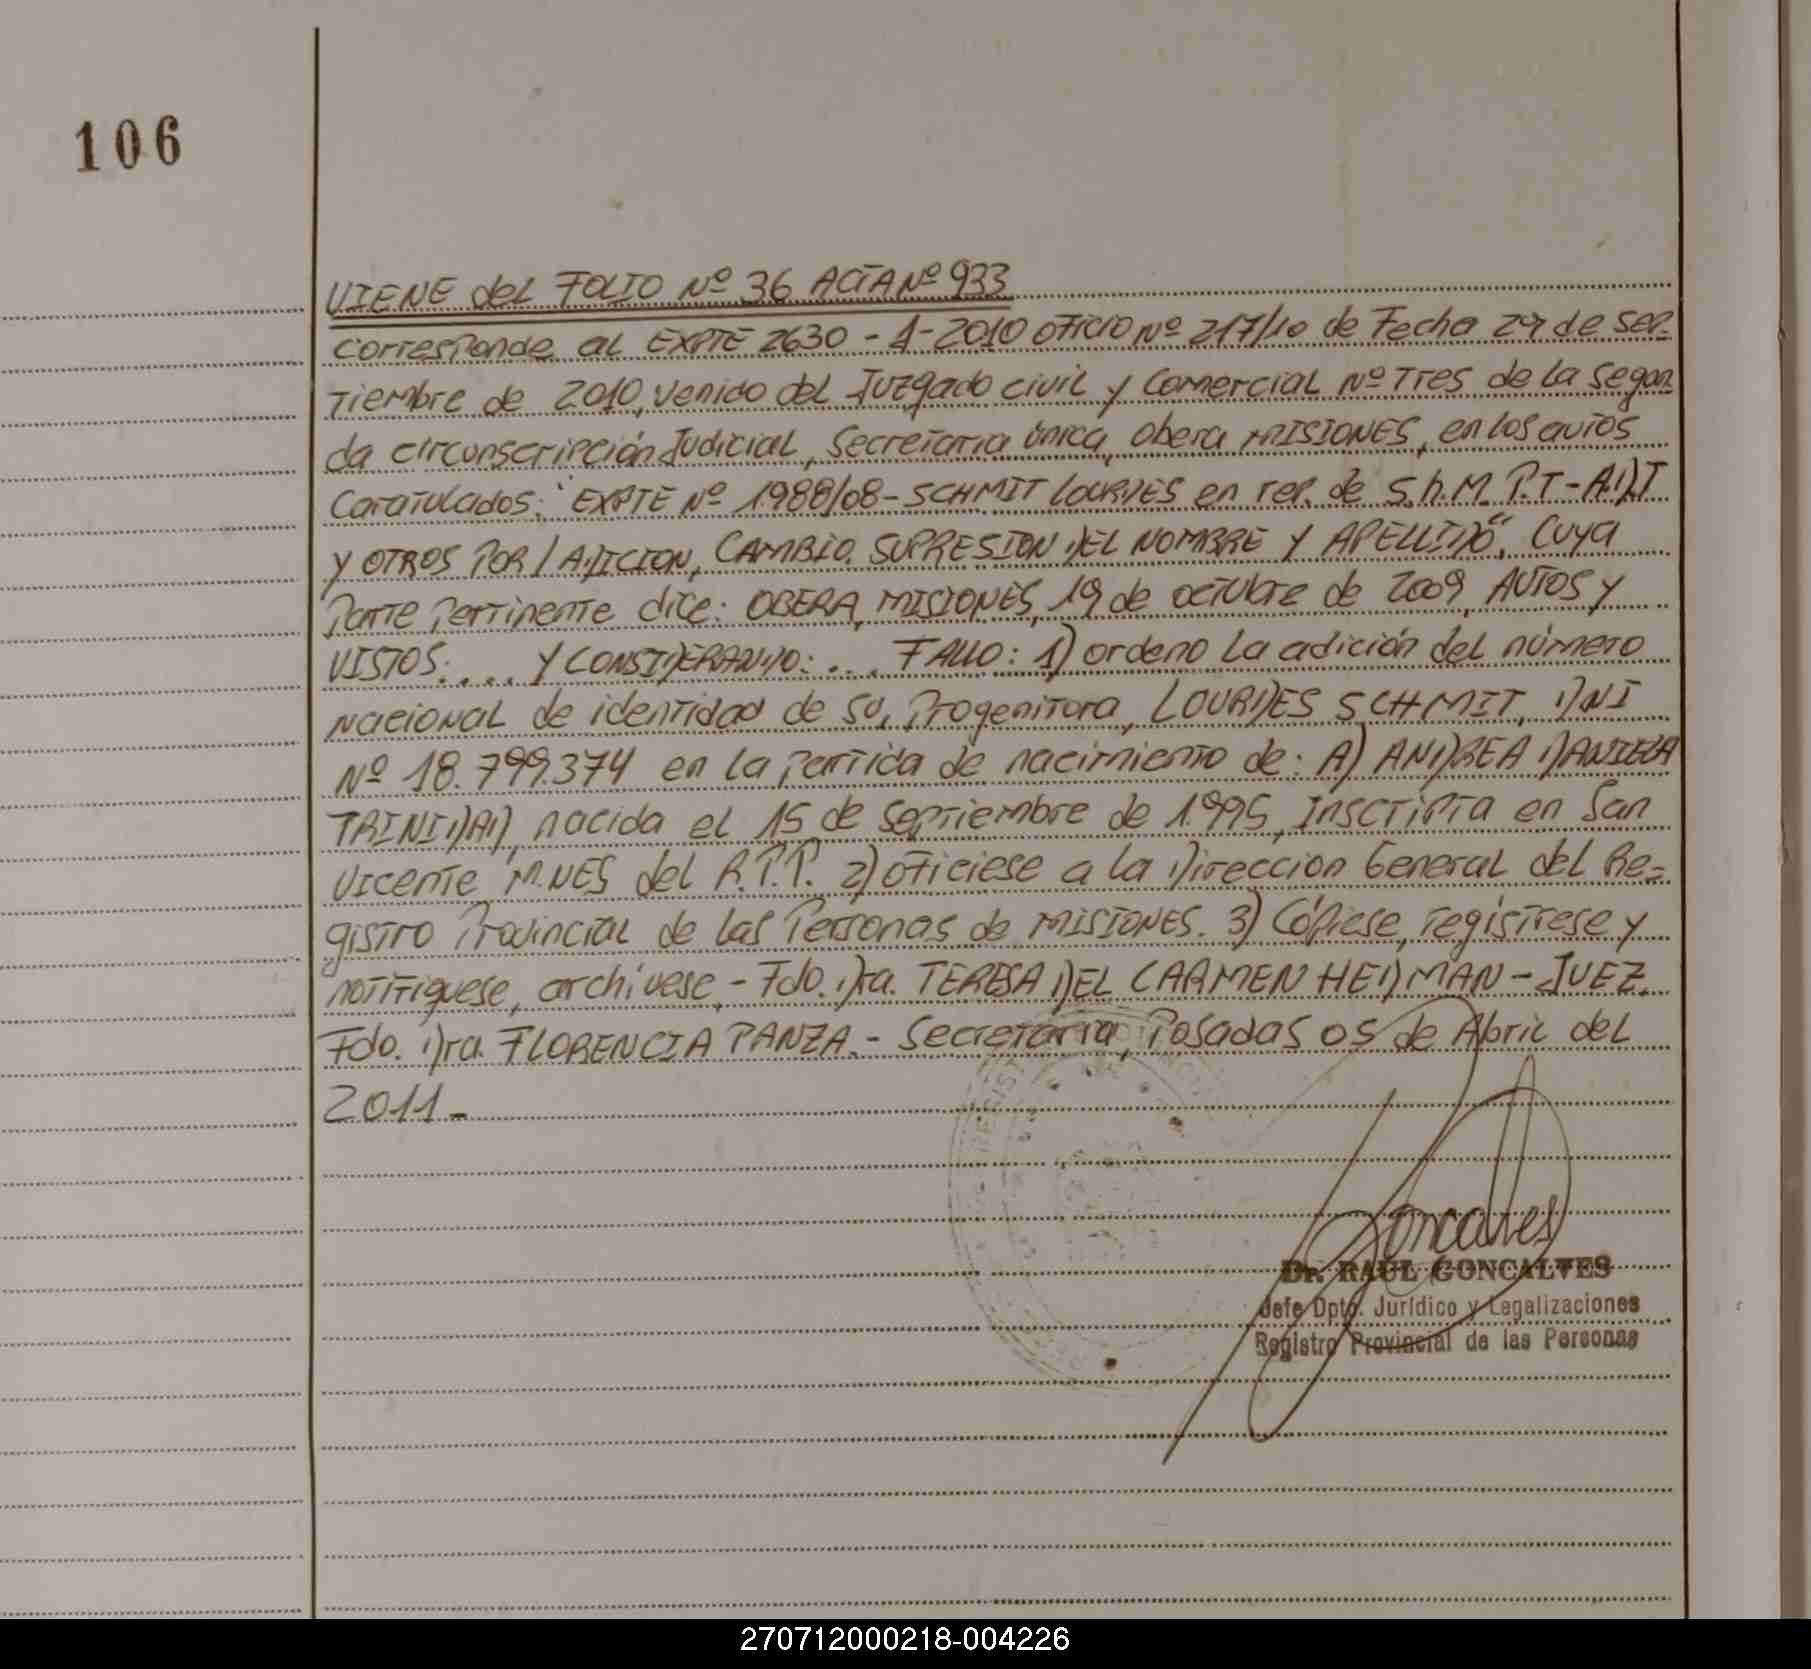 106
VIENE del FOLIO Nº 36 ACTA Nº 933
corresponde al EXPTE 2630 - 1 - 2010 oficio Nº 217/10 de Fecha 29 de sep-
tiembre de 2010, venido del Juzgado civil y Comercial Nº Tres de la Segun-
da circunscripción Judicial, Secretaria única, obera MISIONES, en los autos
Caratulados: "EXPTE Nº 1988/08 - SCHMIT LOURDES en rep. de S.h.M. P.T - A.D.T
y OTROS POR / ADICION, CAMBIO, SUPRESION DEL NOMBRE Y APELLIDO", Cuya
Parte Pertinente dice: OBERA, MISIONES, 19 de octubre de 2009, AUTOS y
VISTOS: .... Y CONSIDERANDO: ... FALLO: 1) ordeno la adición del número
nacional de identidad de su, Progenitora, LOURDES SCHMIT, DNI
Nº 18.799.374 en la partida de nacimiento de: A) ANDREA DANIELA
TRINIDAD, nacida el 15 de Septiembre de 1.995, Inscripta en San
Vicente M.NES del R.P.P. 2) ofíciese a la Direccion General del Re-
gistro Provincial de las Personas de MISIONES. 3) Cópiese, regístrese y
notifiquese, archívese.- Fdo. Dra. TERESA DEL CARMEN HEDMAN - JUEZ.
Fdo. Dra. FLORENCIA PANZA.- Secretaria, Posadas 05 de Abril del
2011.-
Goncalves
Dr. RAUL GONCALVES
Jefe Dpto. Jurídico y Legalizaciones
Registro Provincial de las Personas
270712000218-004226